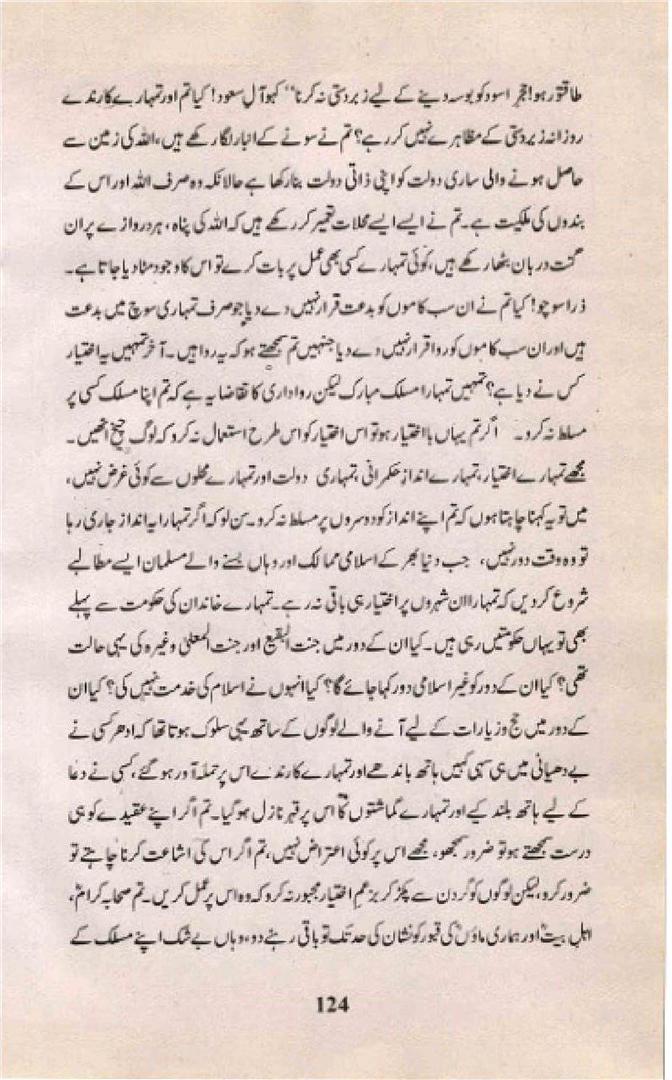 طاقتور ہو! حجر اسود کو بوسہ دینے کے لیے زبردستی نہ کرنا‘‘ کہو آل سعود! کیا تم اور تمہارے کارندے
روزانہ زبردستی کے مظاہرے نہیں کر رہے؟ تم نے سونے کے انبار لگا رکھے ہیں، اللہ کی زمین سے
حاصل ہونے والی ساری دولت کو اپنی ذاتی دولت بنا رکھا ہے حالانکہ وہ صرف اللہ اور اس کے
بندوں کی ملکیت ہے۔ تم نے ایسے ایسے محلات تعمیر کر رکھے ہیں کہ اللہ کی پناہ، ہر دروازے پر ان
گنت دربان بٹھا رکھے ہیں، کوئی تمہارے کسی بھی عمل پر بات کرے تو اس کا وجود مٹا دیا جاتا ہے۔
ذرا سوچو! کیا تم نے ان سب کاموں کو بدعت قرار نہیں دے دیا جو صرف تمہاری سوچ میں بدعت
ہیں اور ان سب کاموں کو روا قرار نہیں دے دیا جنہیں تم سمجھتے ہو کہ یہ روا ہیں۔ آخر تمہیں یہ اختیار
کس نے دیا ہے؟ تمہیں تمہارا مسلک مبارک لیکن رواداری کا تقاضا یہ ہے کہ تم اپنا مسلک کسی پر
مسلط نہ کرو۔ اگر تم یہاں با اختیار ہو تو اس اختیار کو اس طرح استعمال نہ کرو کہ لوگ چیخ اٹھیں۔
مجھے تمہارے اختیار، تمہارے انداز حکمرانی، تمہاری دولت اور تمہارے محلوں سے کوئی غرض نہیں،
میں تو یہ کہنا چاہتا ہوں کہ تم اپنے انداز کو دوسروں پر مسلط نہ کرو۔ سن لو کہ اگر تمہارا یہ انداز جاری رہا
تو وہ وقت دور نہیں، جب دنیا بھر کے اسلامی ممالک اور وہاں بسنے والے مسلمان ایسے مطالبے
شروع کر دیں کہ تمہارا ان شہروں پر اختیار ہی باقی نہ رہے۔ تمہارے خاندان کی حکومت سے پہلے
بھی تو یہاں حکومتیں رہی ہیں۔ کیا ان کے دور میں جنت البقیع اور جنت المعلیٰ وغیرہ کی یہی حالت
تھی؟ کیا ان کے دور کو غیر اسلامی دور کہا جائے گا؟ کیا انہوں نے اسلام کی خدمت نہیں کی؟ کیا ان
کے دور میں حج و زیارات کے لیے آنے والے لوگوں کے ساتھ یہی سلوک ہوتا تھا کہ ادھر کسی نے
بے دھیانی میں ہی سہی کہیں ہاتھ باندھے اور تمہارے کارندے اس پر حملہ آور ہو گئے، کسی نے دعا
کے لیے ہاتھ بلند کیے اور تمہارے گماشتوں کا اس پر قہر نازل ہو گیا۔ تم اگر اپنے عقیدے کو ہی
درست سمجھتے ہو تو ضرور سمجھو، مجھے اس پر کوئی اعتراض نہیں، تم اگر اس کی اشاعت کرنا چاہتے تو
ضرور کرو، لیکن لوگوں کو گردن سے پکڑ کر بزعم اختیار مجبور نہ کرو کہ وہ اس پر عمل کریں۔ تم صحابہ کرامؓ،
اہل بیتؓ اور ہماری ماؤںؓ کی قبور کو نشان کی حد تک تو باقی رہنے دو، وہاں بے شک اپنے مسلک کے
124